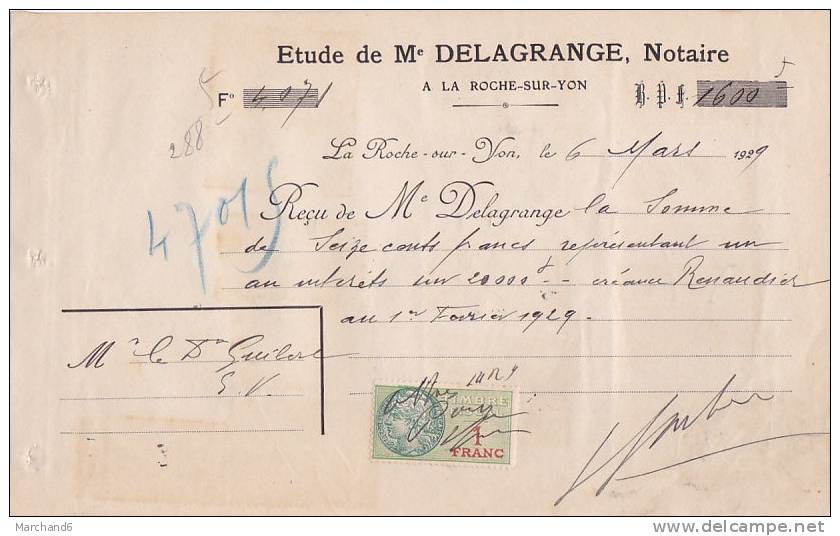 Etude de Me DELAGRANGE, Notaire
A LA ROCHE-SUR-YON
5
288
Fo 4071
B. P. F. 1600 f
La Roche-sur-Yon, le 6 Mars 1929
47015
Reçu de Me Delagrange la somme
de Seize cents francs représentant un
an intérêts sur 20000f - créance Renaudier
au 1er Fevrier 1929.
Mr le Dr
E.V.
TIMBRE
1
FRANC
Marchand6
www.delcampe.net